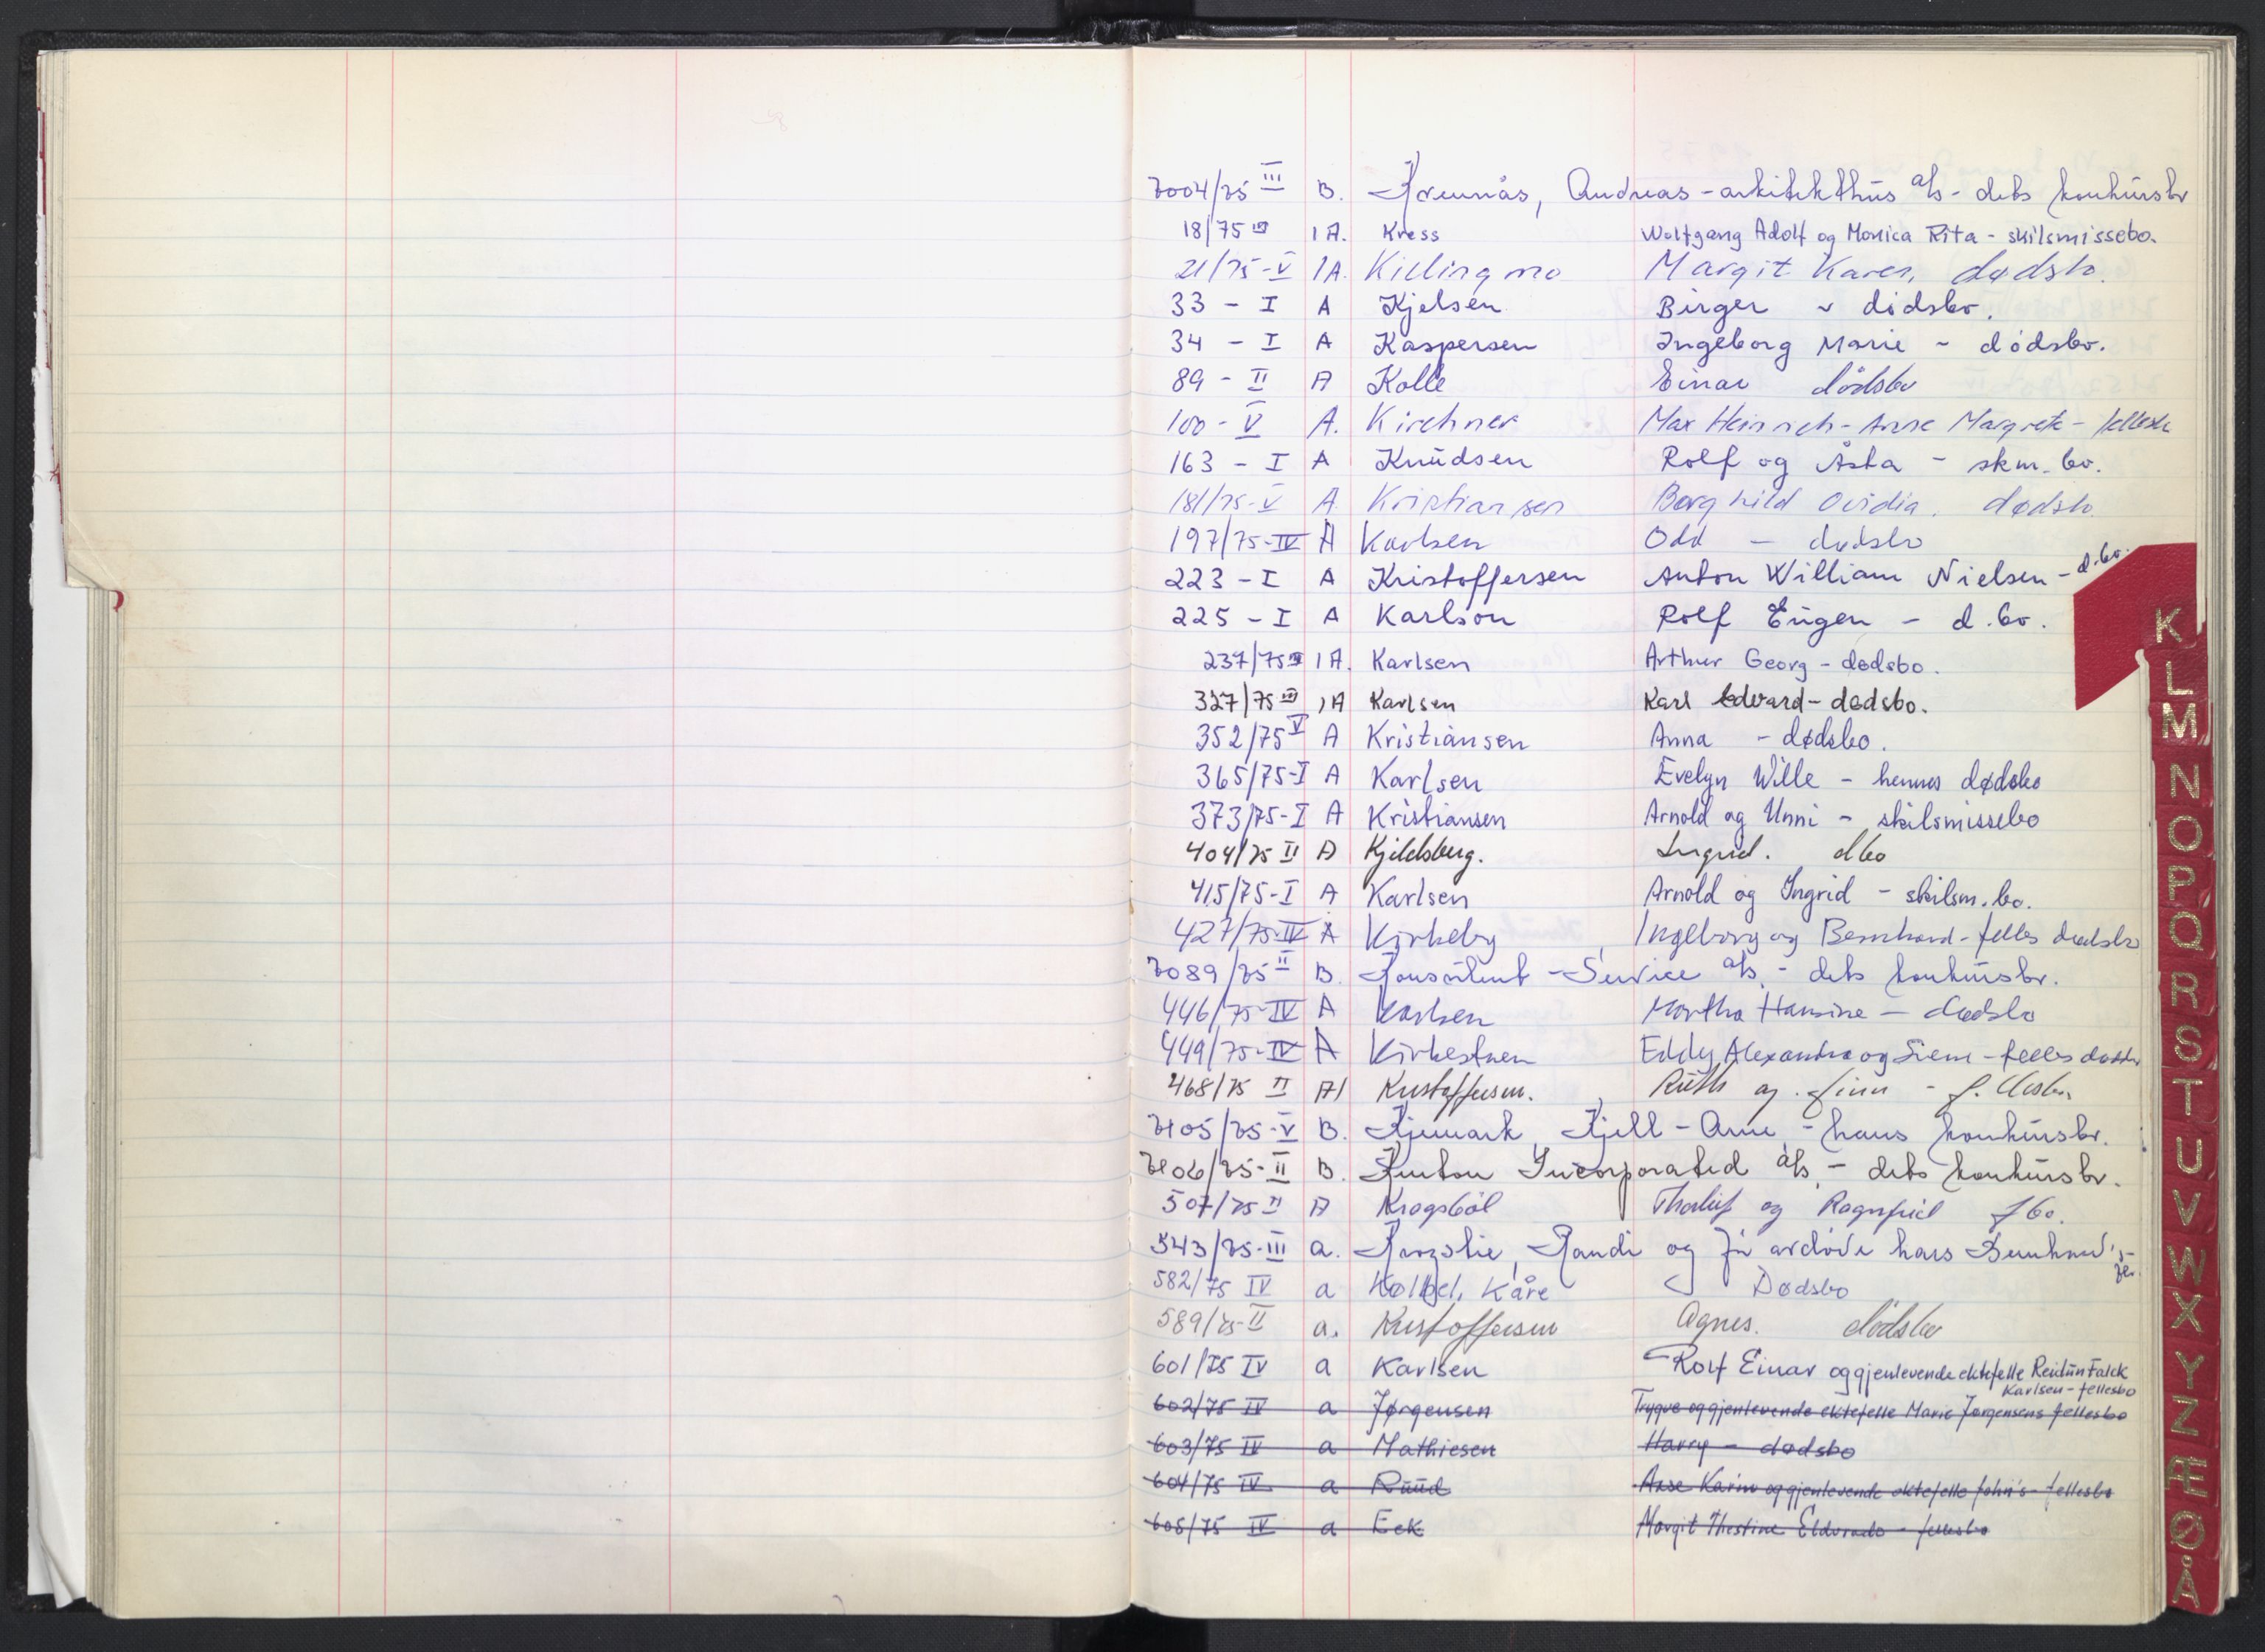 7004/75 III B. Korennås, Andreas - arkitekthus a/s - dets konkursbo
18/75 III 1A. Kress Wolfgang Adolf og Monica Rita - skilsmissebo.
21/75-V 1A. Killingmo Margit Karen, dødsbo.
33 - I A Kjelsen Birger - dødsbo.
34 - I A Kaspersen Ingeborg Marie - dødsbo.
89 - II A Kolle Einar dødsbo
100 - V A. Kirchner Max Heinrich - Anne Margrete - fellesbo
163 - I A Knudsen Rolf og Åsta - skm. bo.
181/75-V A Kristiansen Borghild Ovidia. dødsbo.
197/75-IV A Karlsen Odd - dødsbo
223 - I A Kristoffersen Anton William Nielsen - d.bo.
225 - I A Karlson Rolf Eugen - d.bo.
237/75 III 1A. Karlsen Arthur Georg - dødsbo.
327/75 III 1A Karlsen Karl Edvard - dødsbo.
352/75 V A Kristiansen Anna - dødsbo.
365/75-I A Karlsen Evelyn Wille - hennes dødsbo
373/75-I A Kristiansen Arnold og Unni - skilsmissebo
404/75 II A Kjeldsberg. Ingrid. dbo
415/75-I A Karlsen Arnold og Ingrid - skilsm.bo.
427/75-IV A Kirkeby, Ingeborg og Bernhard - felles dødsbo
7089/75 II B. Konsulent - Service a/s. - dets konkursbo.
446/75-IV A Karlsen Martha Hansine - dødsbo
449/75-IV A Kirkestuen Eddy Alexandra og Siem - felles dødsbo
468/75 II A Kristoffersen. Ruth og Finn - f.llesbo.
7105/75-V B. Kjemark, Kjell - Arne, - hans konkursbo.
7106/75-II B. Kenton Incorporated a/s, - dets konkursbo.
507/75 II A Kragsbøl Thorleif og Ragnfrid fbo.
543/75-III a. Karzslie, Randi og før avdøde hans Bernhard's
fbo.
582/75 IV a Kølbel, Kåre Dødsbo
589/75-II a. Kristoffersen Agnes. dødsbo
601/75 IV a Karlsen Rolf Einar og gjenlevende ektefelle Reidun Falck
Karlsen - fellesbo
602/75 IV a Jørgensen Trygve og gjenlevende ektefelle Marie Jørgensens fellesbo
603/75 IV a Mathiesen Harry - dødsbo
604/75 IV a Ruud Anse Karin og gjenlevende ektefelle John's - fellesbo
605/75 IV a Eek Margit Thestine Eldorado - fellesbo
K
L
M
N
O
P
Q
R
S
T
U
V
W
X
Y
Z
Æ
Ø
Å